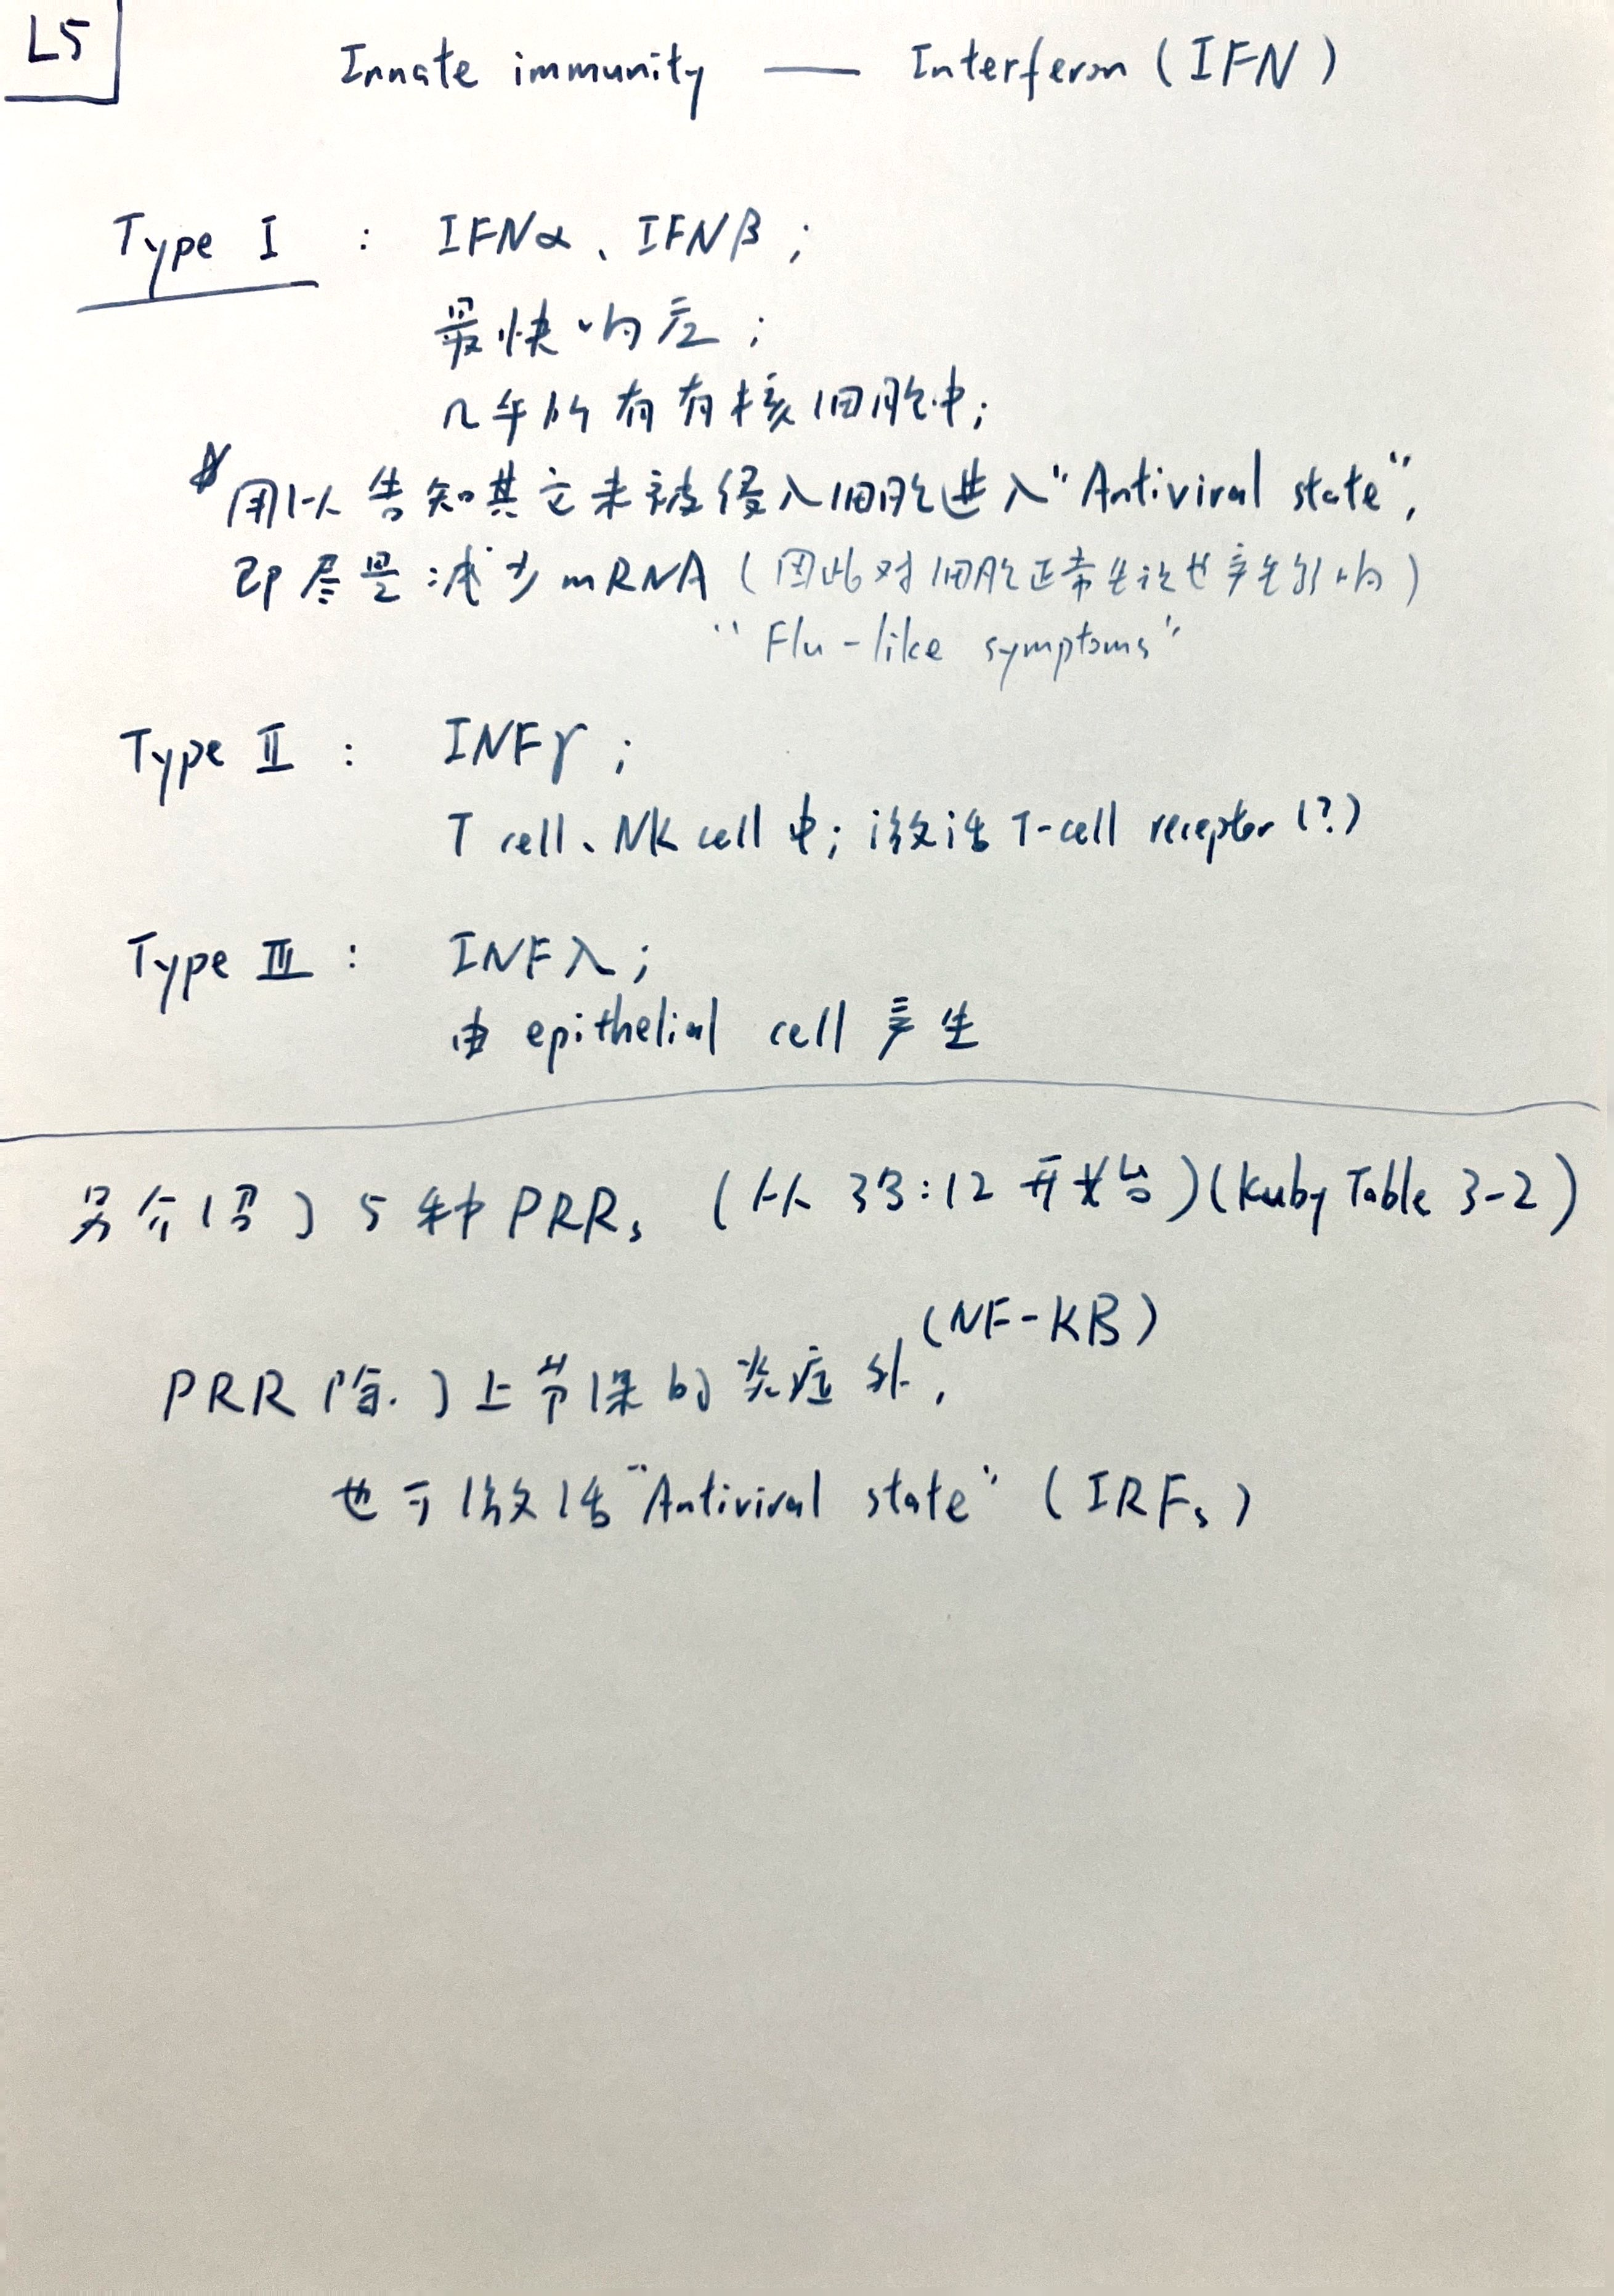 L5
Innate immunity — Interferon (IFN)
Type I : IFNα、IFNβ;
最快响应;
几乎所有有核细胞中;
用以告知其它未被侵入细胞进入“Antiviral state”,
即尽量减少mRNA (因此对细胞正常生活也产生影响)
“Flu-like symptoms”
Type II : INFγ;
T cell、NK cell 中; 激活 T-cell receptor (?)
Type III : INFλ;
由 epithelial cell 产生
另介绍了5种PRRs (从 33:12 开始)(Kuby Table 3-2)
(NF-κB)
PRR 除了上节课的炎症外,
也可激活“Antiviral state” (IRFs)